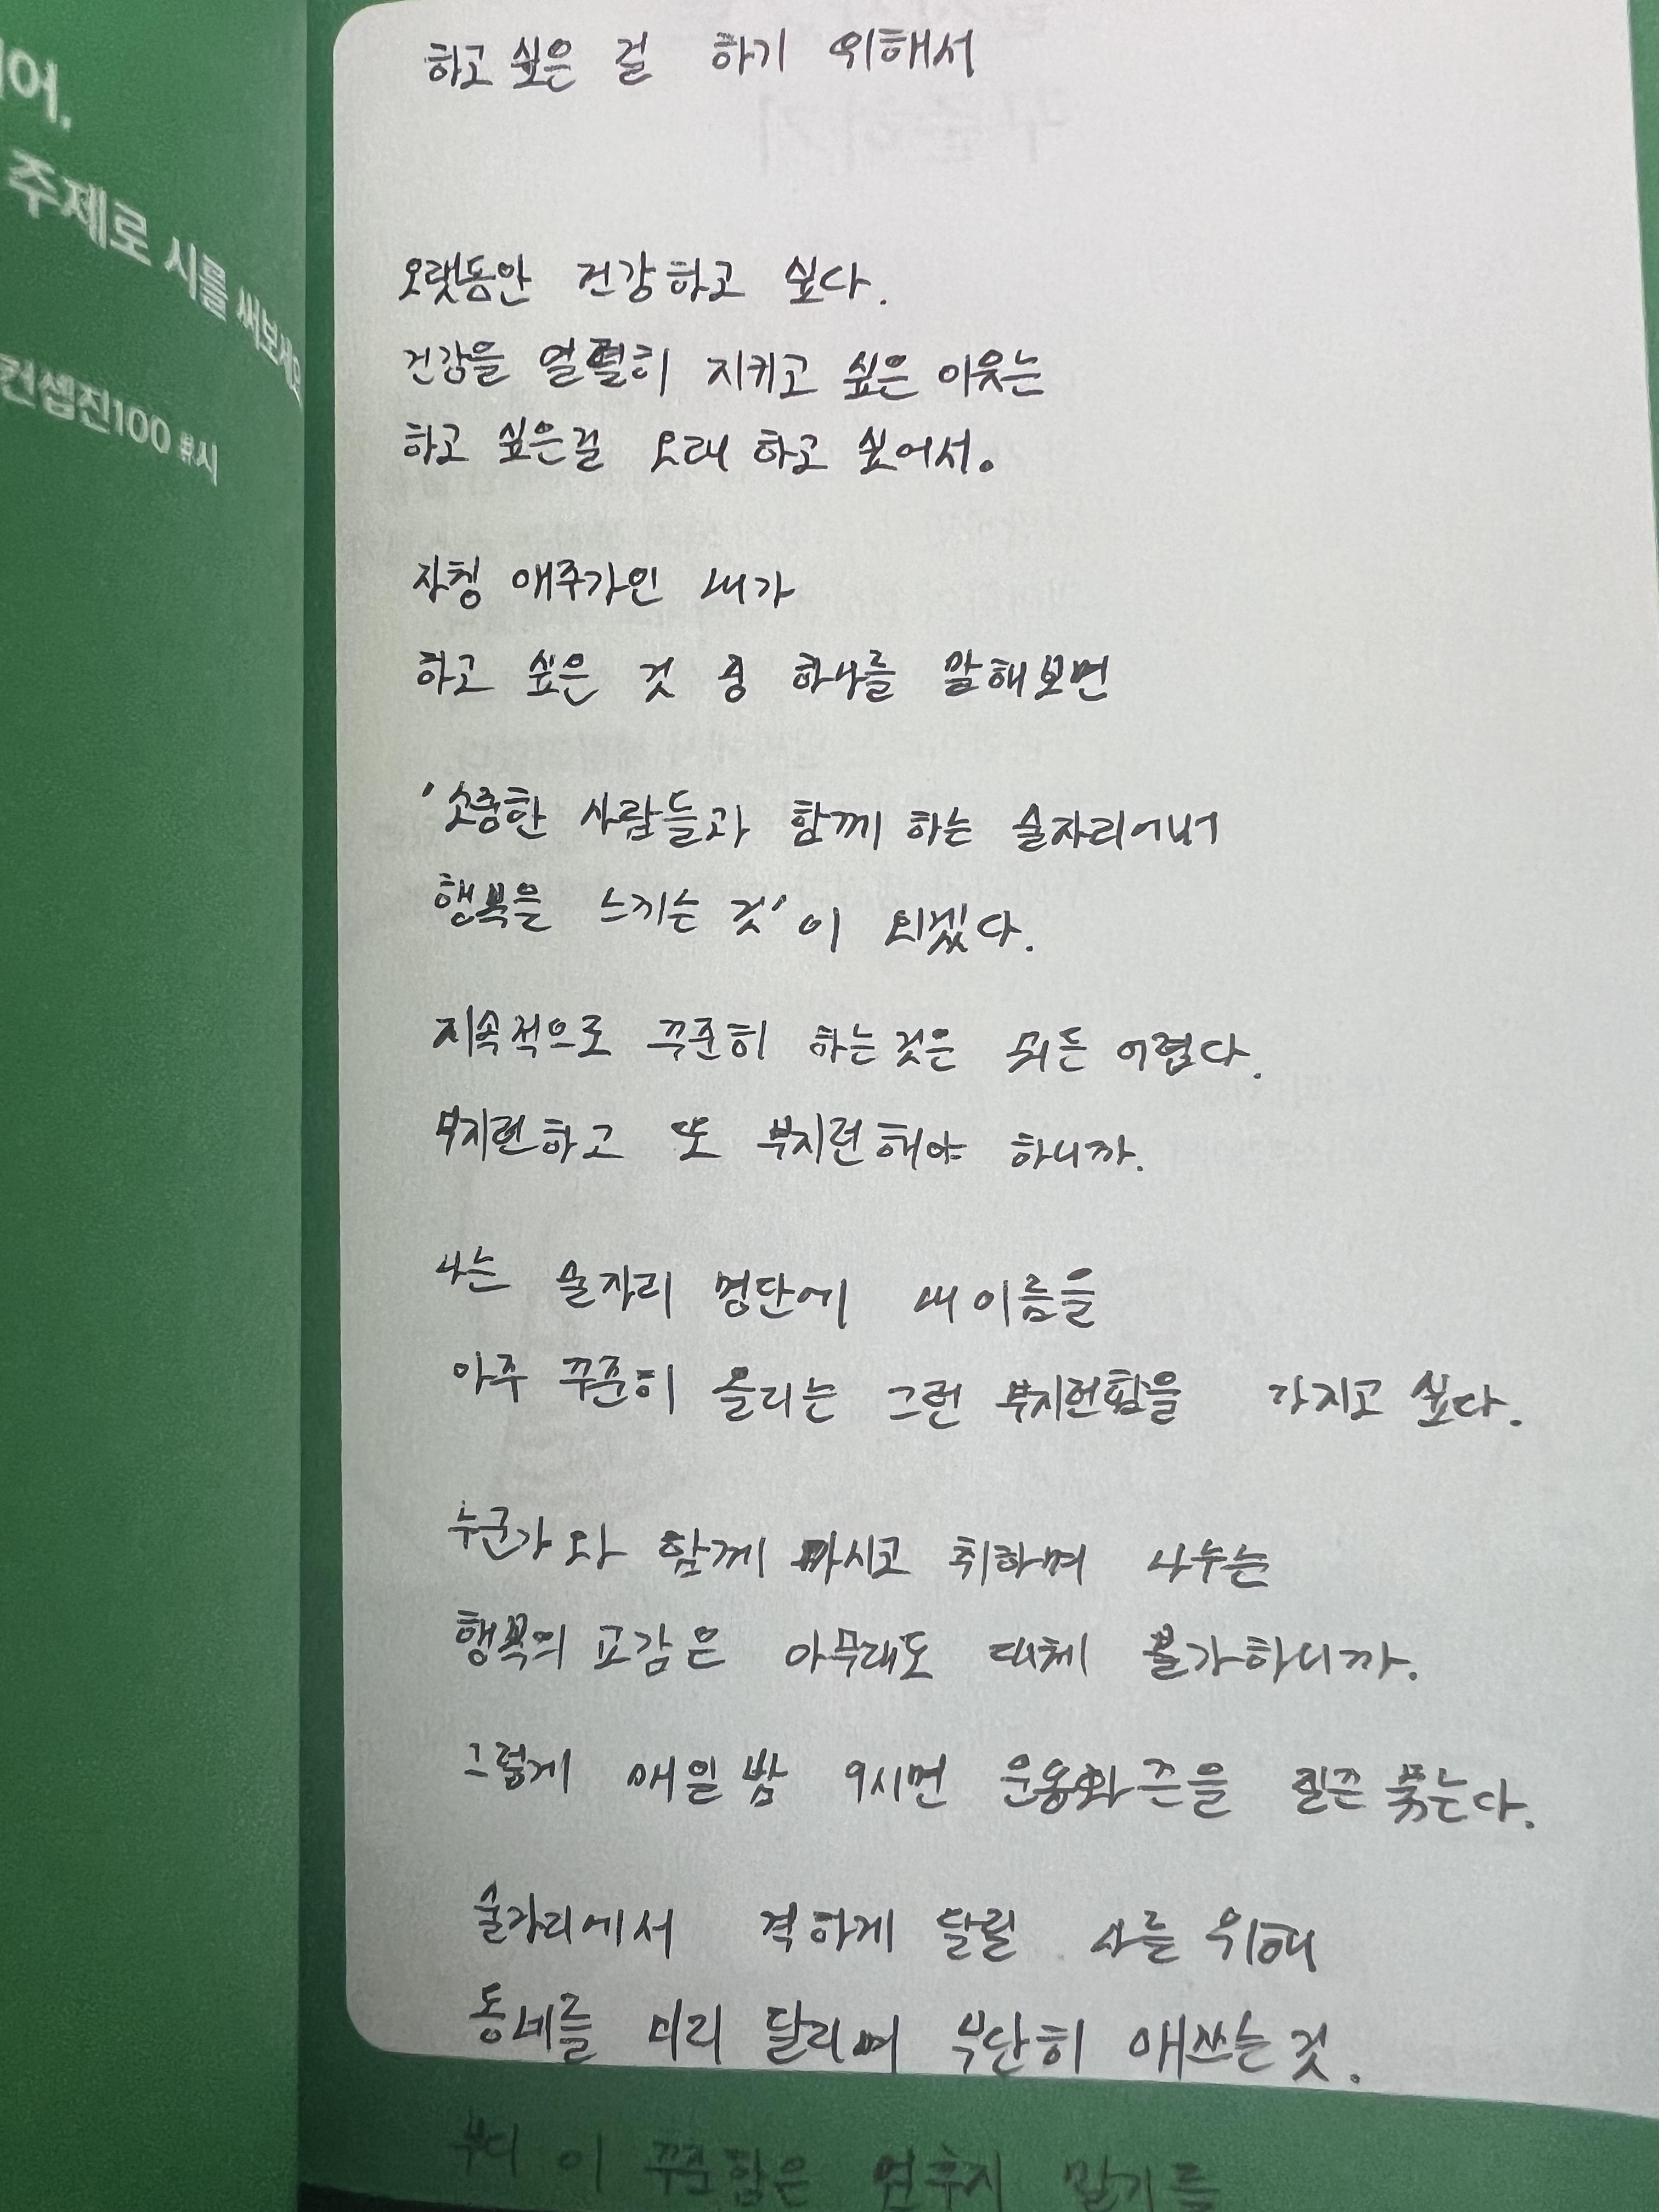 어.
주제로 시를 써보세요
컨셉진100 #시
하고 싶은 걸 하기 위해서
오랫동안 건강하고 싶다.
건강을 열렬히 지키고 싶은 이유는
하고 싶은걸 오래 하고 싶어서.
자칭 애주가인 내가
하고 싶은 것 중 하나를 말해보면
'소중한 사람들과 함께 하는 술자리에서
행복을 느끼는 것'이 되겠다.
지속적으로 꾸준히 하는것은 뭐든 어렵다.
부지런하고 또 부지런해야 하니까.
나는 술자리 명단에 내 이름을
아주 꾸준히 올리는 그런 부지런함을 가지고 싶다.
누군가와 함께 마시고 취하며 나누는
행복의 교감은 아무래도 대체 불가하니까.
그렇게 매일 밤 9시면 운동화 끈을 질끈 묶는다.
술자리에서 격하게 달릴 나를 위해
동네를 미리 달리며 부단히 애쓰는 것.
부디 이 꾸준함은 멈추지 말기를